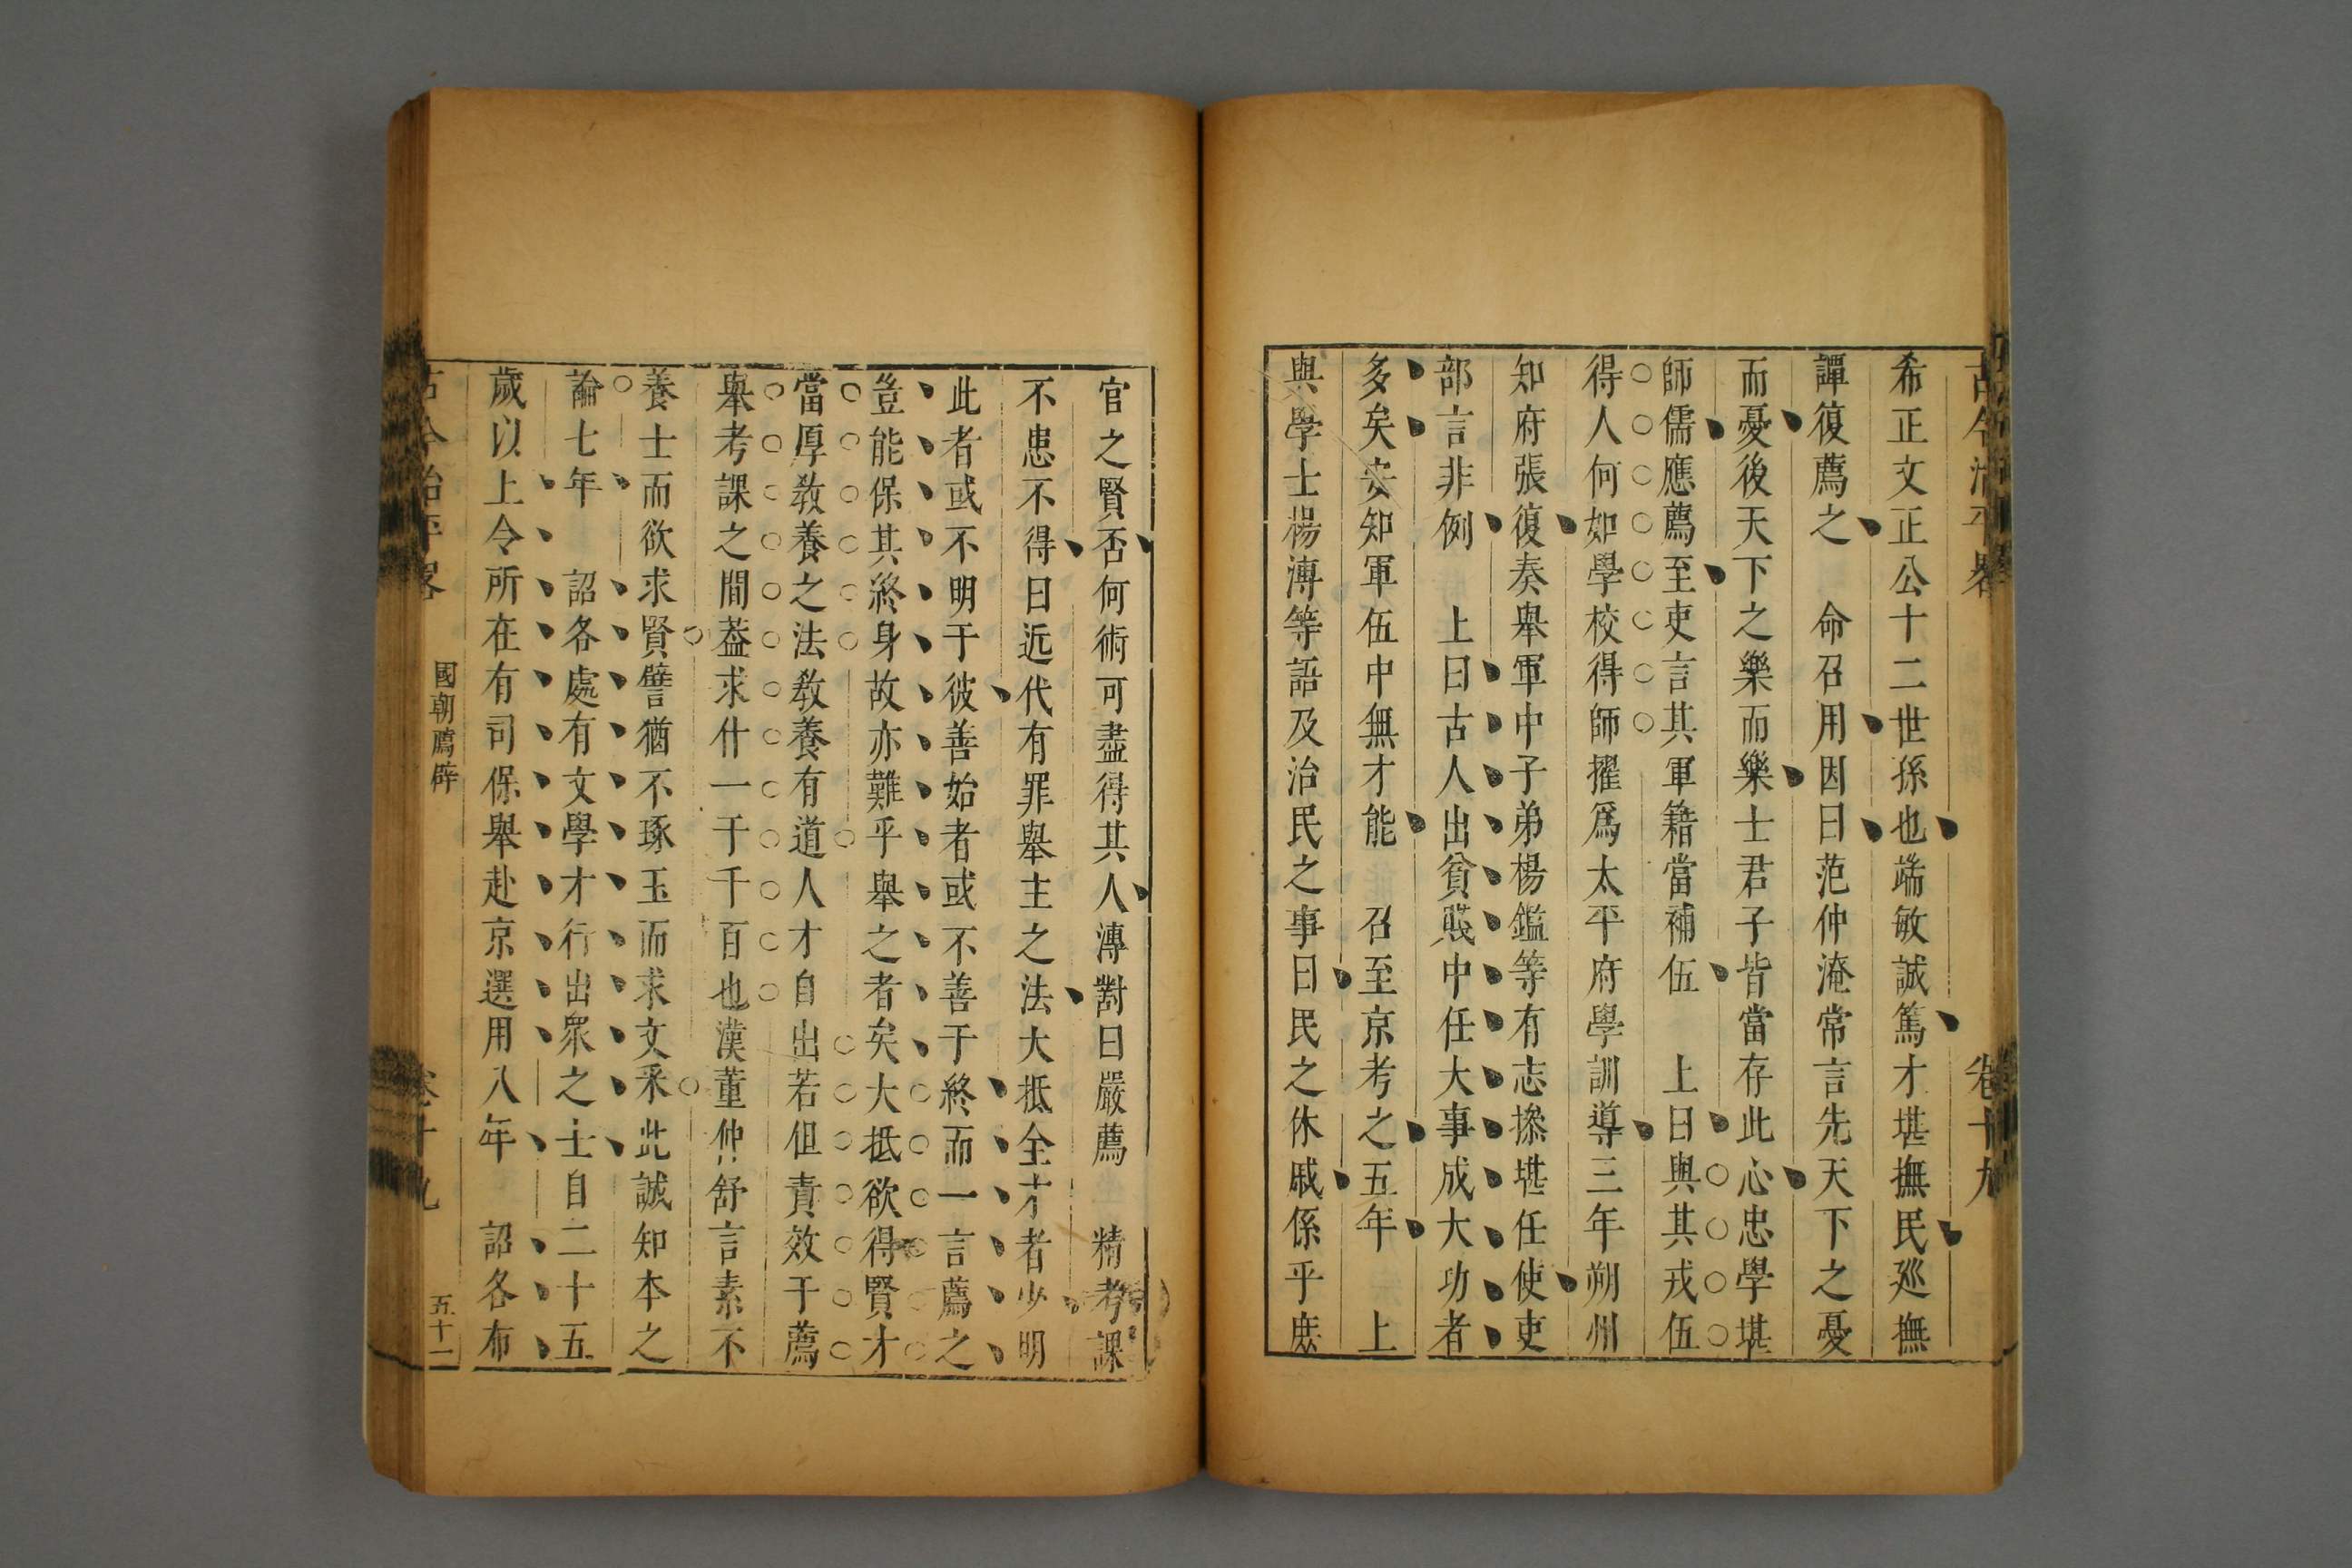 古今治平畧
卷十九
希正文正公十二世孫也端敏誠篤才堪撫民廵撫
譚復薦之　命召用因曰范仲淹常言先天下之憂
而憂後天下之樂而樂士君子皆當存此心忠學堪
師儒應薦至吏言其軍籍當補伍　上曰與其戎伍
得人何如學校得師擢爲太平府學訓導三年朔州
知府張復奏舉軍中子弟楊鑑等有志摻堪任使吏
部言非例　上曰古人出貧賤中任大事成大功者
多矣安知軍伍中無才能　召至京考之五年　上
與學士楊溥等語及治民之事曰民之休戚係乎庶
官之賢否何術可盡得其人溥對曰嚴薦　精考課
不患不得曰近代有罪舉主之法大抵全才者少明
此者或不明于彼善始者或不善于終而一言薦之
豈能保其終身故亦難乎舉之者矣大抵欲得賢才
當厚教養之法教養有道人才自出若但責效于薦
舉考課之間葢求什一于千百也漢董仲舒言素不
養士而欲求賢譬猶不琢玉而求文釆此誠知本之
論七年　詔各處有文學才行出衆之士自二十五
歲以上令所在有司保舉赴京選用八年　詔各布
古今治平畧
國朝薦辟
卷十九
五十一